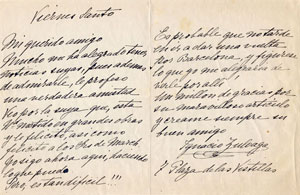 Viernes Santo
Mi querido amigo
Mucho me ha alegrado tener
noticias suyas, pues además
de admirarle, le profeso
una verdadera amistad
Veo por lo suya que, está
Vd metido en grandes obras
y le felicito, así como
felicito a los Sres de March
Yo sigo ahora aquí, haciendo
lo que puedo
Pero, es tan difícil!!!
Es probable que no tarde
en ir a dar una vuelta
por Barcelona, y figúrese
lo que yo me alegraría de
verle por allí
Un millón de gracias por
su maravilloso artículo
y créame siempre su
buen amigo
Ignacio Zuloaga
7 Plaza de las Vistillas